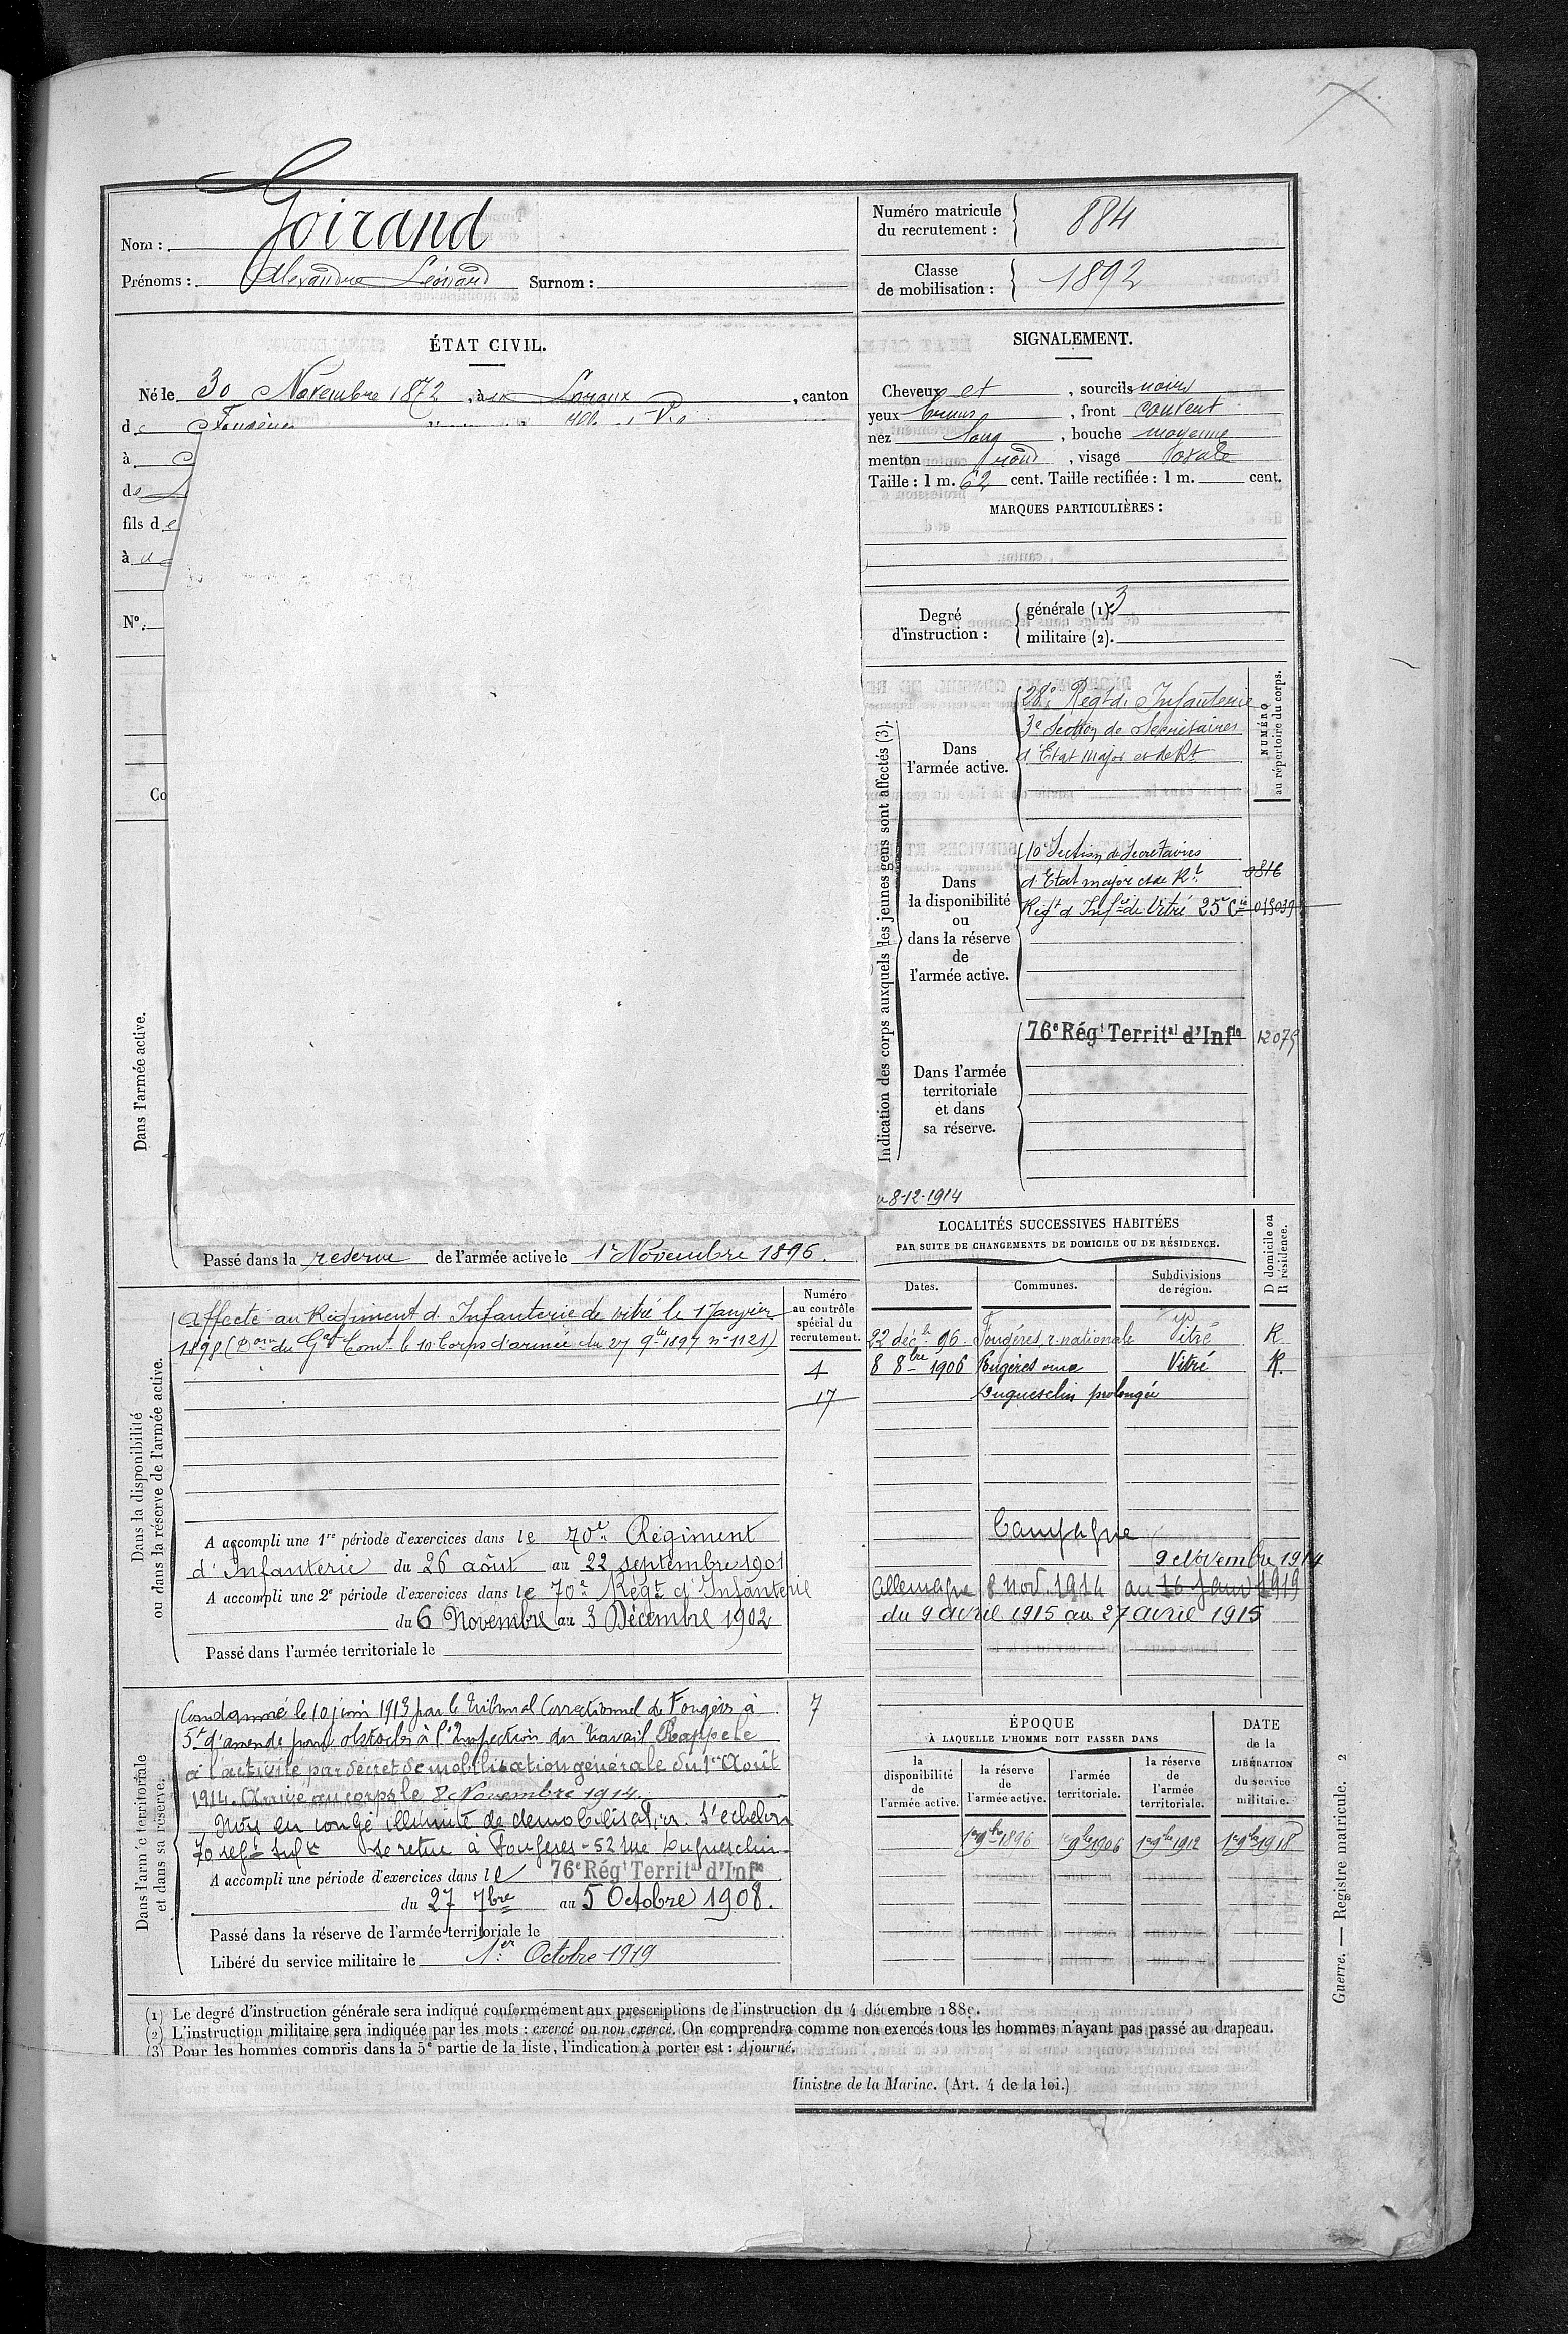 Nom : Goirand
Prénoms : Alexandre Léonard Surnom :
Numéro matricule du recrutement : 884
Classe de mobilisation : 1892
ÉTAT CIVIL.
Né le 30 Novembre 1872, à Laroux, canton
de Fougères
à
de
fils de
à
N°.
Co
Dans l'armée active.
SIGNALEMENT.
Cheveux et, sourcils noirs
yeux bruns, front couvert
nez long, bouche moyenne
menton rond, visage ovale
Taille : 1 m. 62 cent. Taille rectifiée : 1 m. cent.
MARQUES PARTICULIÈRES :
Degré d'instruction :
générale (1). 3
militaire (2).
Indication des corps auxquels les jeunes gens sont affectés (3).
NUMÉRO au répertoire du corps.
Dans l'armée active.
28e Régt d'Infanterie
3e Section de Secrétaires
d'Etat major et de Rt
Dans la disponibilité ou dans la réserve de l'armée active.
10e Section de Secrétaires
d'Etat major et de Rt 0816
Régt d'Infie de Vitré 25e Cie 015039
Dans l'armée territoriale et dans sa réserve.
76e Régt Territal d'Infie 12075
8-12-1914
Passé dans la réserve de l'armée active le 1r Novembre 1896.
Dans la disponibilité ou dans la réserve de l'armée active.
Numéro au contrôle spécial du recrutement.
Affecté au Régiment d'Infanterie de Vitré le 1 Janvier
1898 (Don du Gal Comt le 10 Corps d'armée du 27 9bre 1897 n° 1121)
4
17
A accompli une 1re période d'exercices dans le 70e Régiment
d'Infanterie du 26 août au 22 septembre 1901
A accompli une 2e période d'exercices dans le 70e Régt d'Infanterie
du 6 Novembre au 3 Décembre 1902
Passé dans l'armée territoriale le
LOCALITÉS SUCCESSIVES HABITÉES
PAR SUITE DE CHANGEMENTS DE DOMICILE OU DE RÉSIDENCE.
Dates. Communes. Subdivisions de région. D domicile ou R résidence.
22 déc. 96 Fougères, r. nationale Vitré R
8 8bre 1906 Fougères rue Vitré R.
Duguesclin prolongée
Campagne
9 Novembre 1914
Allemagne 8 Nov. 1914 au 16 Janv 1919
du 9 avril 1915 au 27 avril 1915
Dans l'armée territoriale et dans sa réserve.
Condamné le 10 juin 1913 par le tribunal Correctionnel de Fougères à 7
5f d'amende pour obstacles à l'Inspection du travail Rappelé
à l'activité par décret de mobilisation générale du 1er Août
1914. Arrivé au corps le 8 Novembre 1914.
Mis en congé illimité de démobilisation. 1r échelon
70 regt Infie se retire à Fougères - 52 rue Duguesclin.
A accompli une période d'exercices dans le 76e Régt Territal d'Infie
du 27 7bre au 5 Octobre 1908.
Passé dans la réserve de l'armée territoriale le
Libéré du service militaire le 1er Octobre 1919
ÉPOQUE
À LAQUELLE L'HOMME DOIT PASSER DANS
la disponibilité de l'armée active.
la réserve de l'armée active.
l'armée territoriale.
la réserve de l'armée territoriale.
DATE de la LIBÉRATION du service militaire.
1er 9bre 1896 1er 9bre 1906 1er 9bre 1912 1er 9bre 1918
(1) Le degré d'instruction générale sera indiqué conformément aux prescriptions de l'instruction du 4 décembre 1889.
(2) L'instruction militaire sera indiquée par les mots : exercé ou non exercé. On comprendra comme non exercés tous les hommes n'ayant pas passé au drapeau.
(3) Pour les hommes compris dans la 5e partie de la liste, l'indication à porter est : Ajourné.
Ministre de la Marine. (Art. 4 de la loi.)
Guerre. — Registre matricule. 2